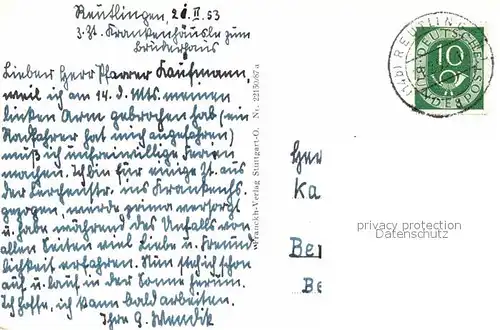 Reutlingen, 20. II. 53
z. Zt. Krankenhäusle zum
Bruderhaus
Lieber Herr Pfarrer Kaufmann,
weil ich am 14. d. Mts. meinen
linken Arm gebrochen hab (ein
Radfahrer hat mich angefahren)
muß ich unfreiwillige Ferien
machen. Ich bin für einige Zt. aus
der ins Krankenhs.
gezogen, wurde prima versorgt
u. habe während des Unfalls von
allen Seiten viel Liebe u. Freund
lichkeit erfahren. Nun steh ich schon
auf u. lauf in der Sonne herum.
Ich hoffe, ich kann bald arbeiten.
Ihre G. Wendik
Franckh-Verlag Stuttgart-O. Nr. 22150/67 a
(14b) REUTLINGEN
DEUTSCHE
BUNDESPOST
10
Her
Ka
Be
Be
privacy protection
Datenschutz